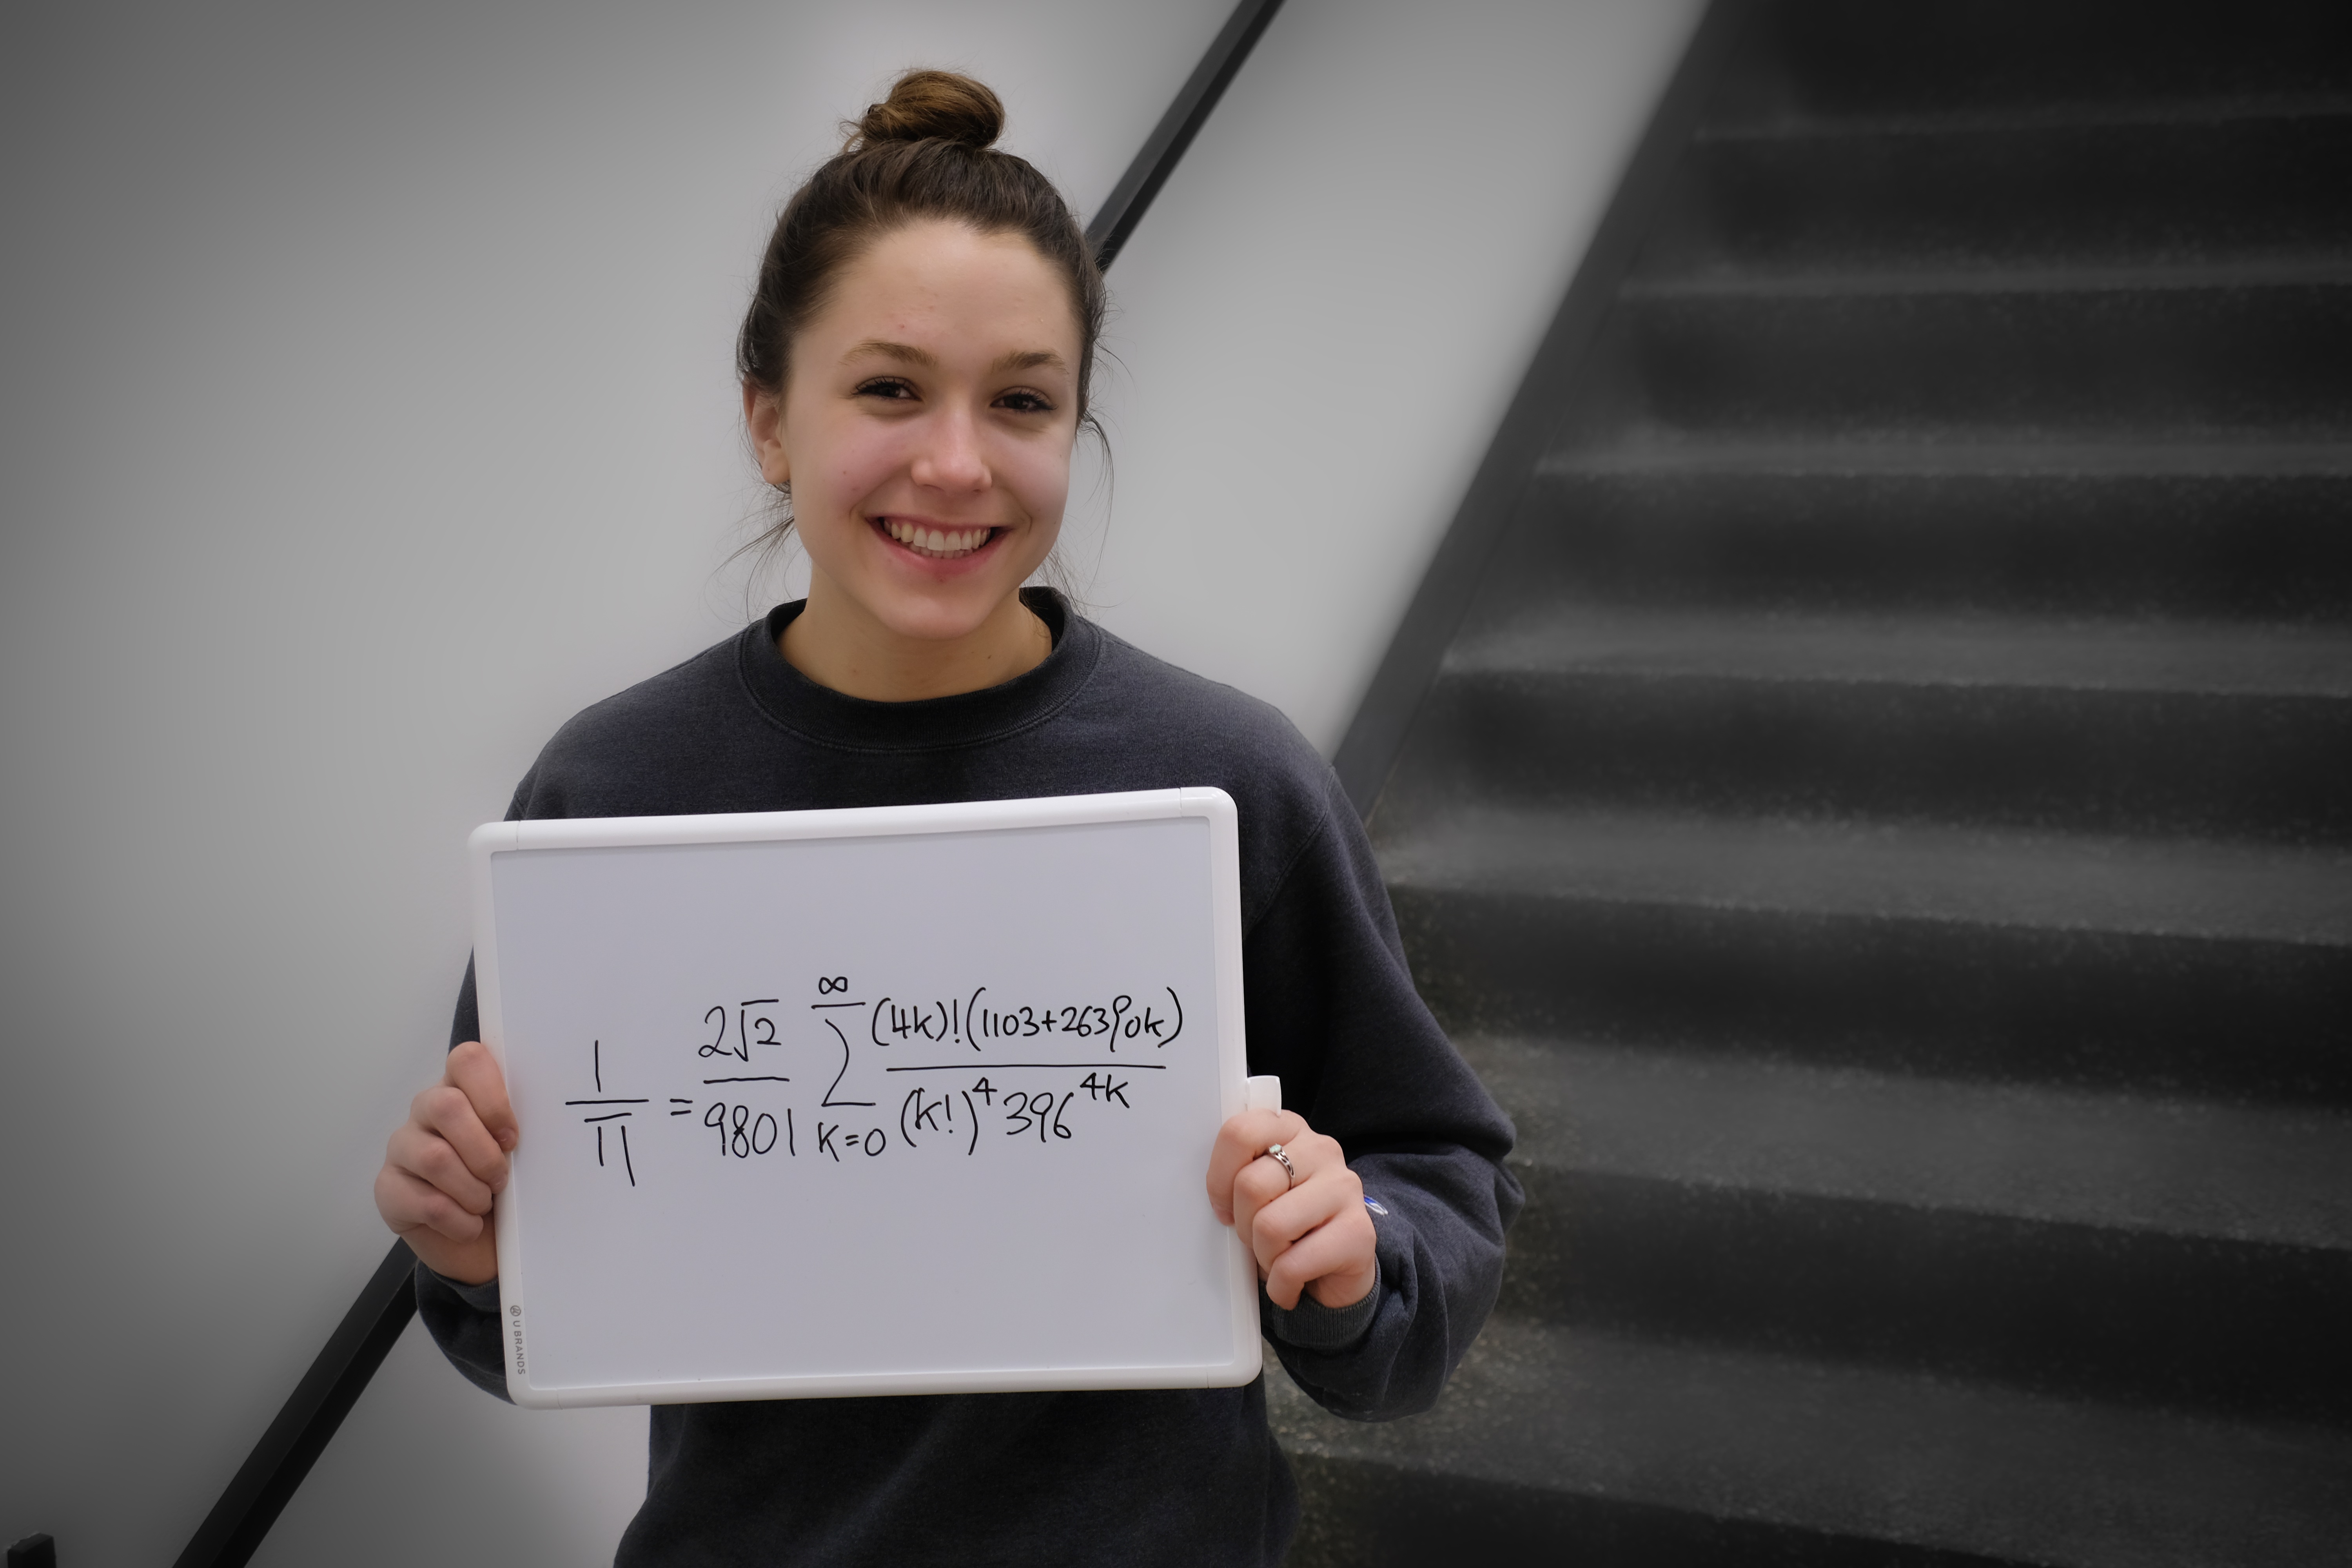 1/π = 2√2/9801 ∑_{k=0}^{∞} (4k)!(1103+26390k)/(k!)⁴396⁴ᵏ
U BRANDS